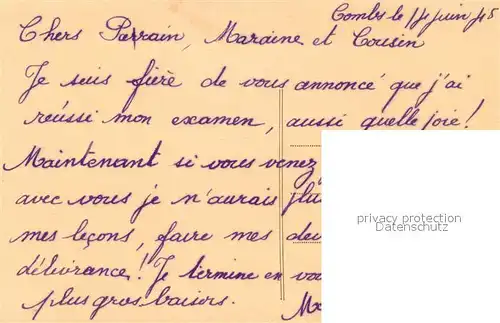 Combs le 14 juin 45
Chers Parrain, Maraine et Cousin
Je suis fière de vous annoncé que j'ai
réussi mon examen, aussi quelle joie!
Maintenant si vous venez
avec vous je n'aurais plu
mes leçons, faire mes dev
délivrance! Je termine en vou
plus gros baisers.
privacy protection
Datenschutz